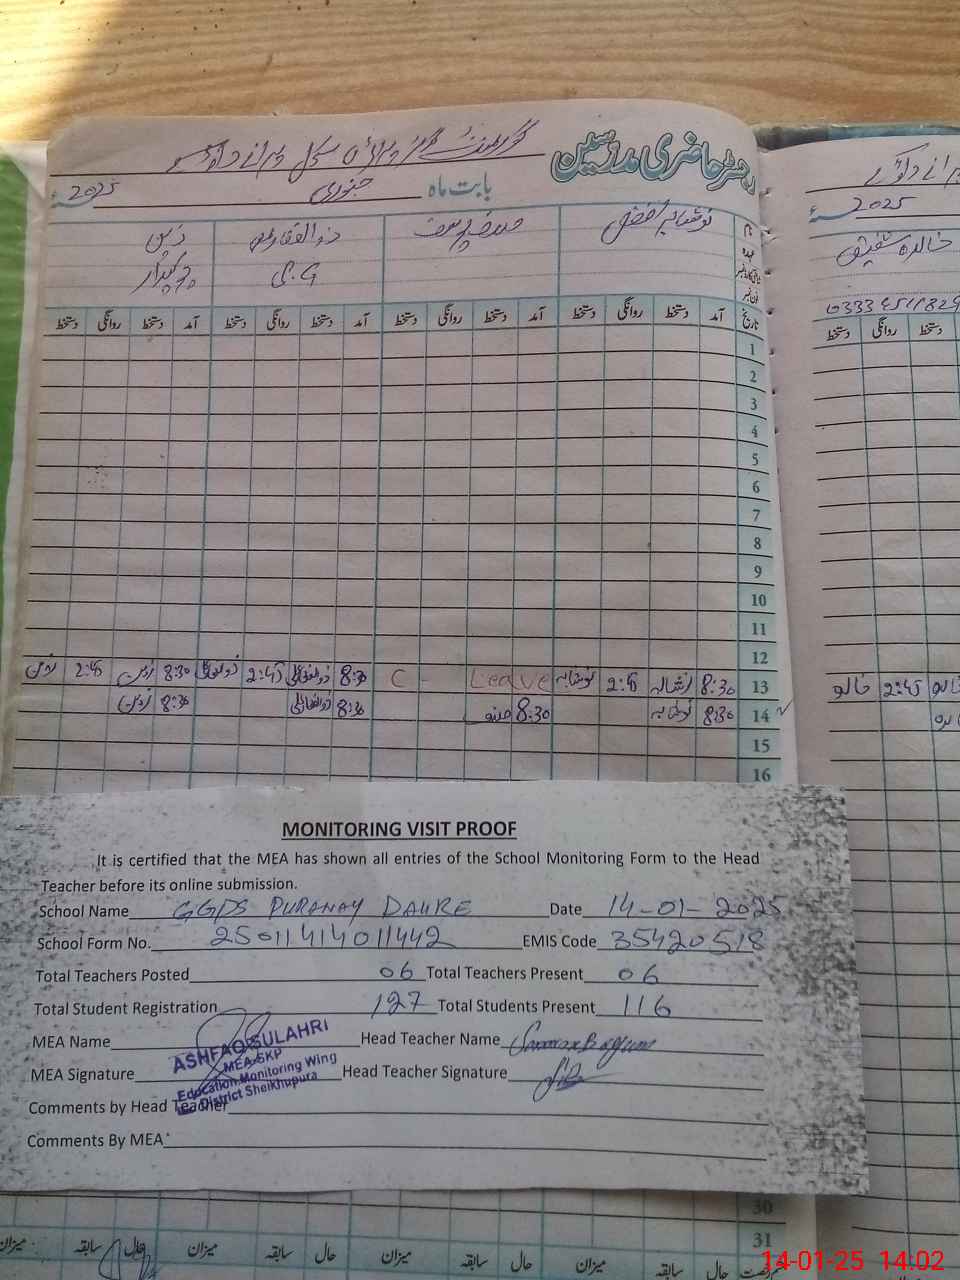 رجسٹر حاضری مدرسین
گورنمنٹ گرلز پرائمری سکول پرانے
بابت ماہ جنوری 2025ء
2025ء
نام
نوشابہ
ذوالفقار علی
چوکیدار
خالدہ شفیق
تاریخ آمد دستخط روانگی دستخط آمد دستخط روانگی دستخط آمد دستخط روانگی دستخط آمد دستخط روانگی دستخط
دستخط روانگی دستخط
1
2
3
4
5
6
7
8
9
10
11
12
13 8:30 2:45 نوشابہ C - Leave 8:30 2:45 8:30 2:45
2:45
14 8:30 نوشابہ 8:30 8:30 8:30
15
16
MONITORING VISIT PROOF
It is certified that the MEA has shown all entries of the School Monitoring Form to the Head
Teacher before its online submission.
School Name GGPS PURANAY DAHRE Date 14-01-2025
School Form No. 25011414011442 EMIS Code 35420518
Total Teachers Posted 06 Total Teachers Present 06
Total Student Registration 127 Total Students Present 116
MEA Name Head Teacher Name
ASHFAQ SULAHRI
MEA-SKP
Education Monitoring Wing
District Sheikhupura
MEA Signature Head Teacher Signature
Comments by Head Teacher
Comments By MEA
30
31
حال سابقہ میزان حال سابقہ میزان حال سابقہ میزان حال سابقہ میزان
14-01-25 14:02